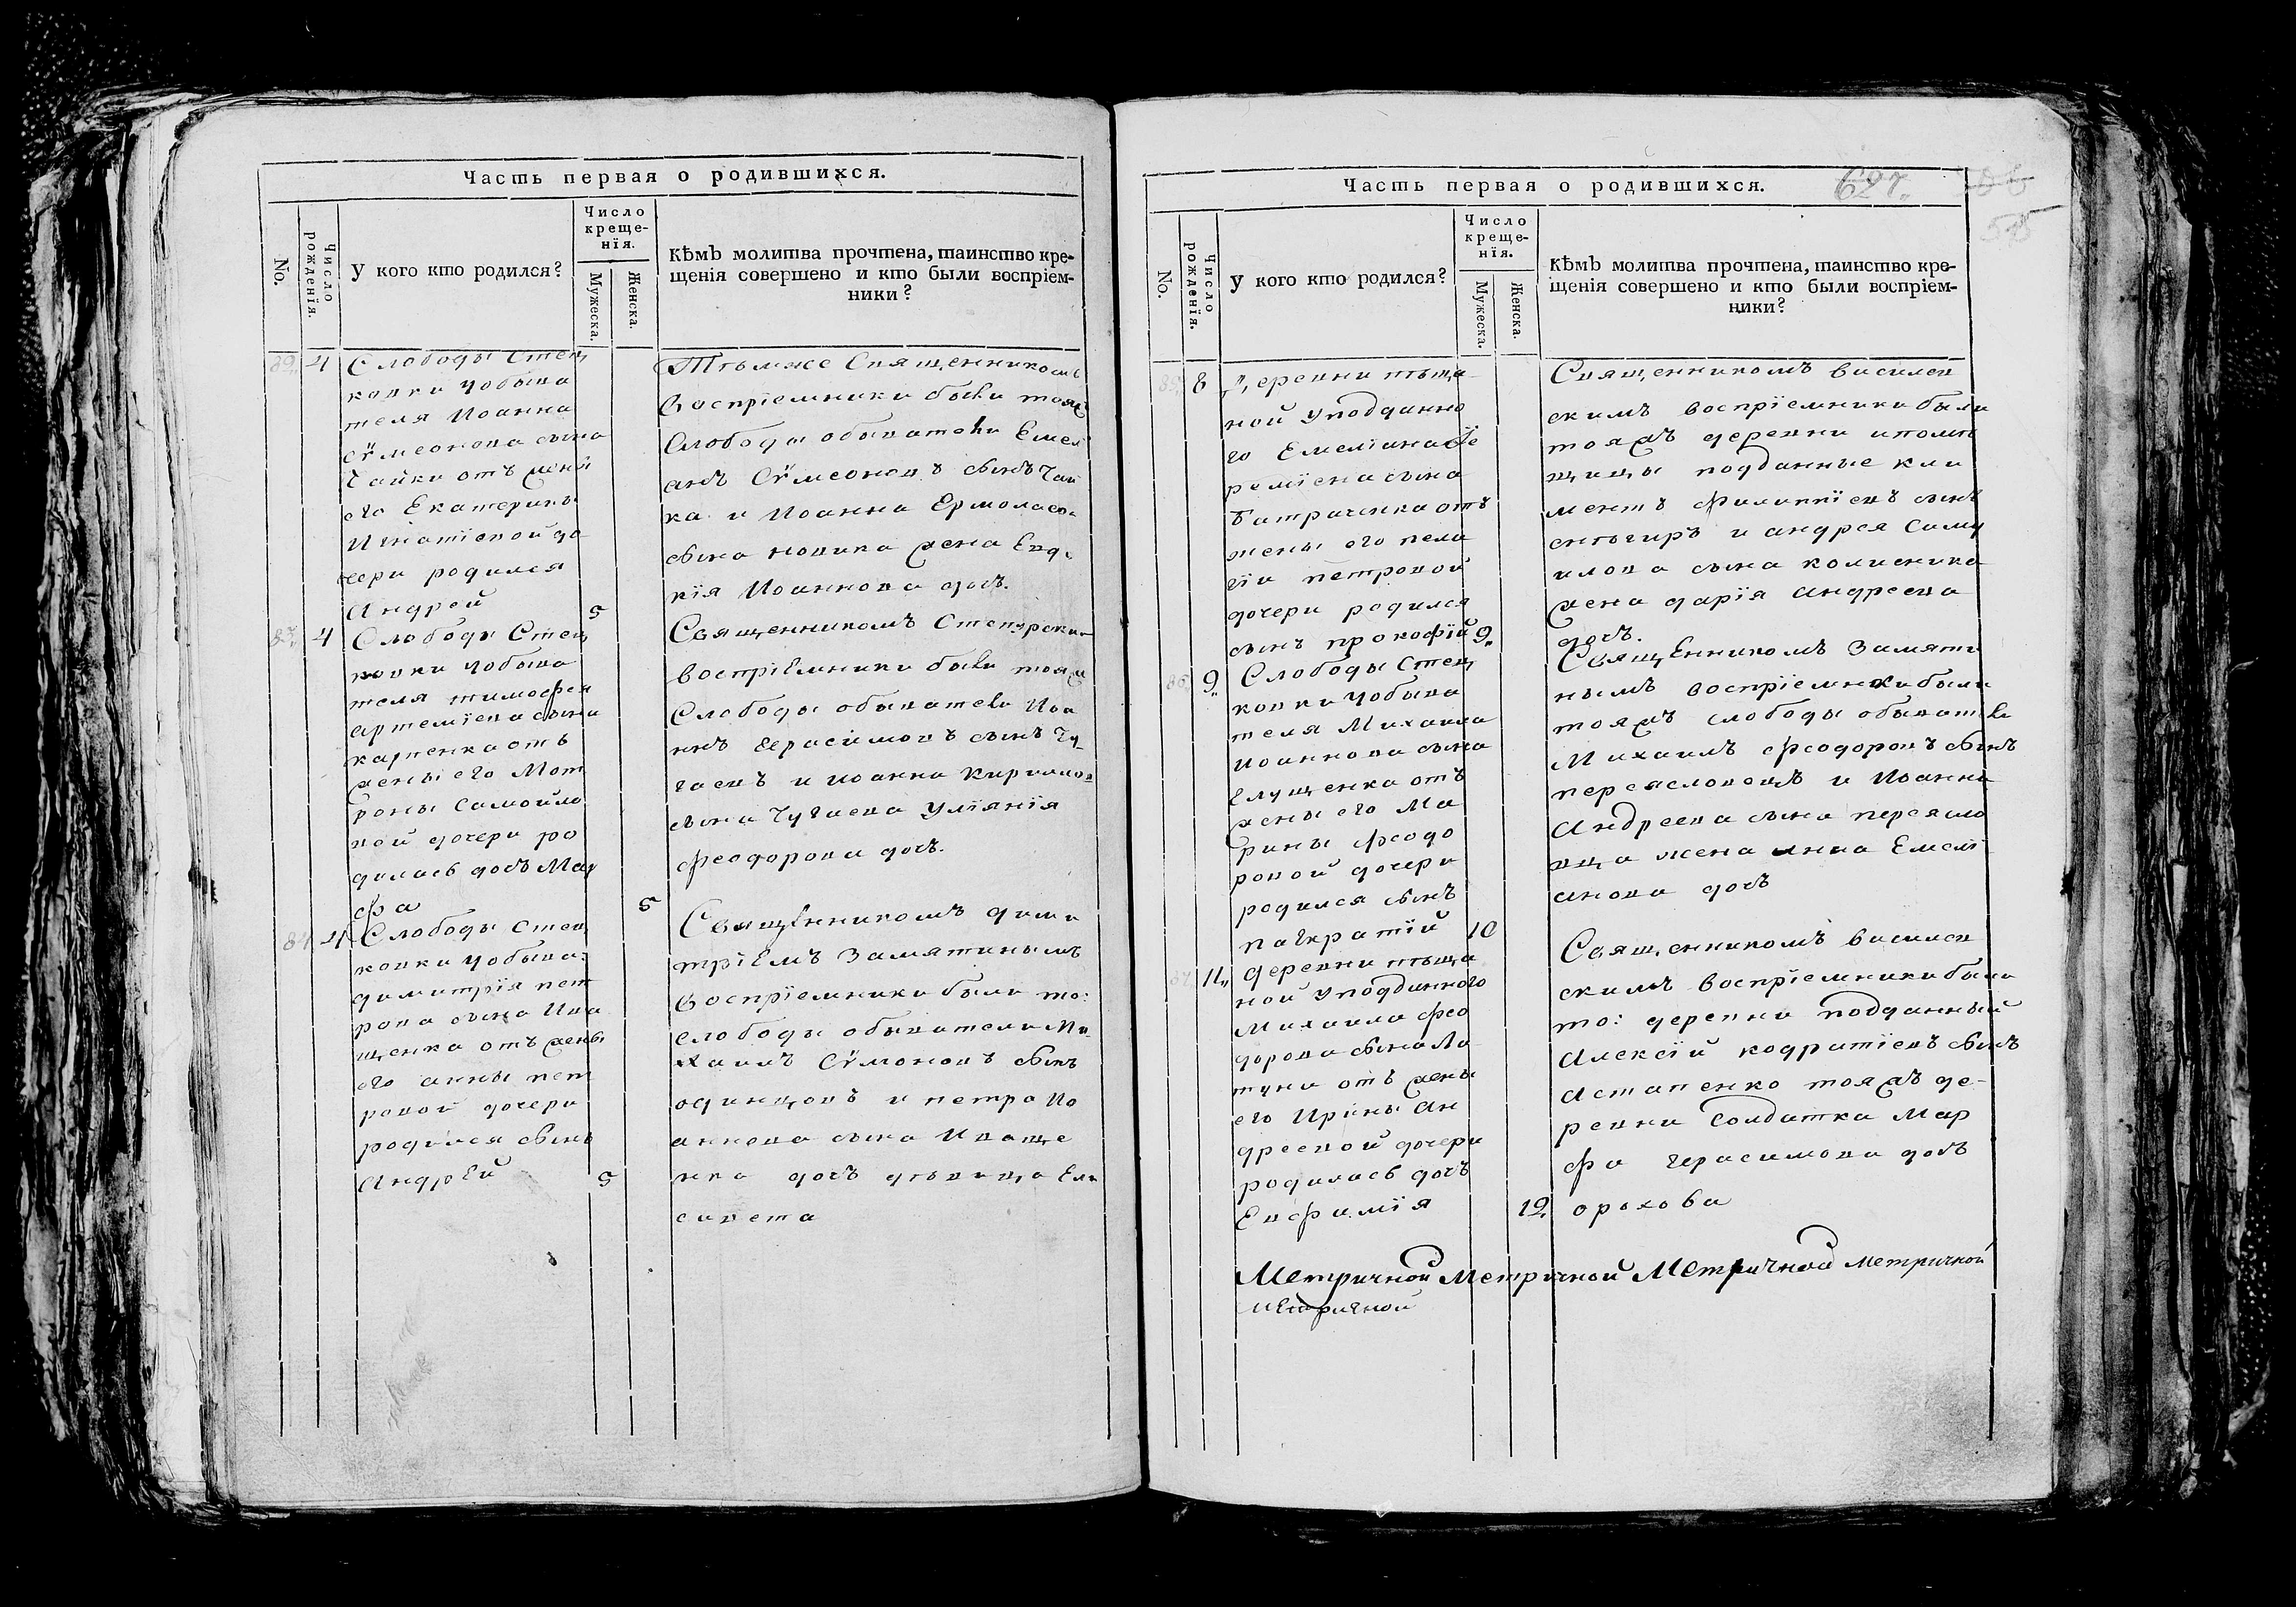 Часть первая о родившихся.
No.
Число рожденія.
У кого кто родился?
Число крещенія.
Мужеска.
Женска.
Кѣмъ молитва прочтена, таинство кре-
щенія совершено и кто были воспріем-
ники?
4
Слободы Стец
ковки уобыва
теля Иоанна
сѵмеонова сына
Чайки отъ жены
его Екатерины
Игнатіевой до
чери родился
Андрей
5
Тѣмже Священникомъ
воспріемники были тояж
Слободы обыватели Емел
анъ Сѵмеоновъ сынъ Чай
ка и Иоанна Ермолаево
сына новика жена Евдо
кія Иоаннова дочь.
4
Слободы Стец
ковки уобыва
теля тимофея
артеміева сына
карпенка отъ
жены его Мот
роны Самойло
вой дочери ро
дилась дочь Мар
фа
5
Священникомъ Степурским
воспріемники были тояж
Слободы обыватели Иоа
ннъ Герасимовъ сынъ Чу
гаевъ и иоанна Кириллов
сына Чугаева Уліянія
феодорова дочь.
84 4
Слободы Стец
ковки уобыва:
димитрія пет
рова сына Ива
щенка отъ жены
его анны пет
ровой дочери
родился сынъ
Андрей
5
Священникомъ дими
тріемъ Замятинымъ
воспріемники были то:
слободы обыватели Ми
хаилъ Сѵмоновъ сынъ
одинцовъ и петра Ио
аннова сына Иваще
нка дочь дѣвица Ели
савета
Часть первая о родившихся.
627.
No.
Число рожденія.
У кого кто родился?
Число крещенія.
Мужеска.
Женска.
Кѣмъ молитва прочтена, таинство кре-
щенія совершено и кто были воспріем-
ники?
85, 8
Деревни пѣща
ной уподданно
го Емеліана Іе
реміена сына
Батраченка отъ
жены его пела
гіи петровой
дочери родился
сынъ прокофій
9
Священникомъ василев
скимъ воспріемники были
тояжъ деревни ипомѣ
щицы подданные кли
ментъ филиппіевъ сынъ
снѣгиръ и андрея Саму
илова сына колисника
жена дарія андреева
дочь.
86, 9
Слободы Стец
ковки уобыва
теля Михаила
иоаннова сына
Глущенка отъ
жены его Ма
рины феодо
ровой дочери
родился сынъ
пагкратій
10
Священникомъ Замяти
нымъ воспріемники были
тояжъ слободы обыватели
Михаилъ феодоровъ сынъ
переясловецъ и Иоанна
Андреева сына переясло
вца жена анна Емелі
анова дочь
87 11
деревни пѣща
ной уподданного
Михаила фео
дорова сына Ла
туна отъ жены
его Ирины Ан
дреевой дочери
родилась дочь
Евфимія
12
Священникомъ василев
скимъ воспріемники были
то: деревни подданный
Алексій кодратіевъ сынъ
Астапенко тояжъ де-
ревни Солдатка Мар
фа Герасимова дочь
орохова
Метричной Метричной Метричной Метричной
Метричной